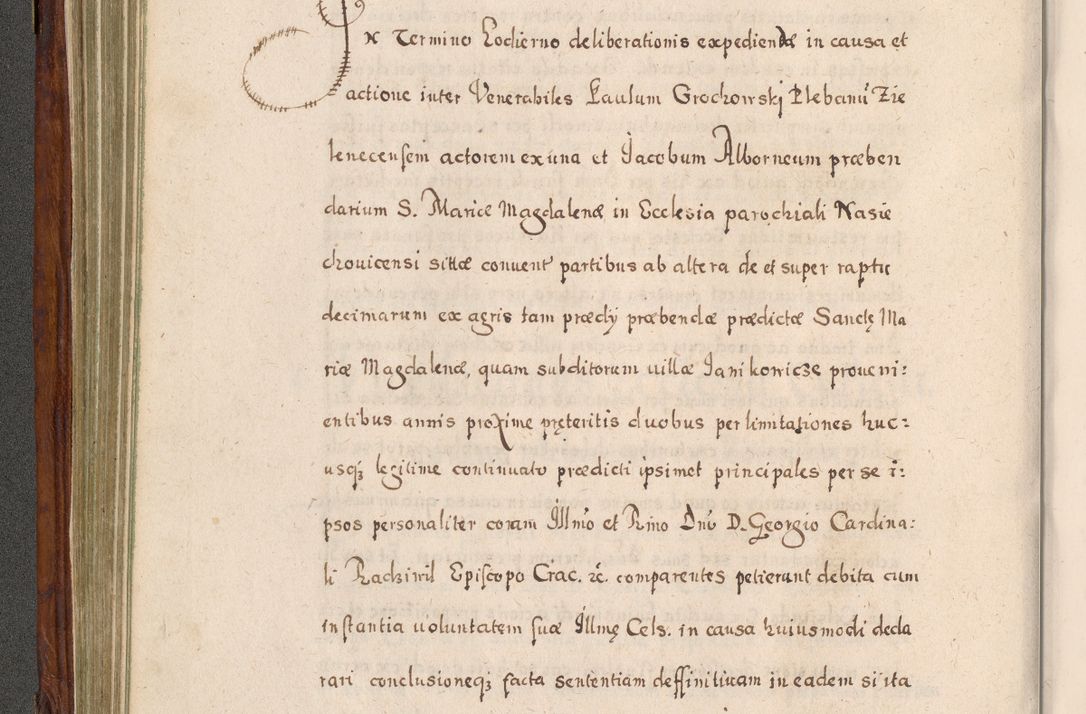 In Termino hodierno deliberationis expediendæ in causa et
actione inter Venerabiles Paulum Grochowski Plebanū Zie
lenecensem actorem ex una et Jacobum Alborneum præben
darium S. Mariæ Magdalenæ in Ecclesia parochiali Nasie
chovicensi sittæ conventꝰ partibus ab altera de et super raptu
decimarum ex agris tam prædÿ præbendæ prædictæ Sanctę Ma
riæ Magdalenæ, quam subditorum villæ Janikowicze proveni:
entibus annis proxime pręteritis duobus per limitationes huc:
usq₃ legitime continuato prædicti ipsimet principales per se i:
psos personaliter coram Illmo et Rmo Dnō D. Georgio Cardina:
li Radziwil Episcopo Crac. ꝛc. comparentes petierunt debita cum
instantia voluntatem suæ Illmę Cels. in causa huiusmodi decla
rari conclusioneq₃ facta sententiam deffinitivam in eadem si ita